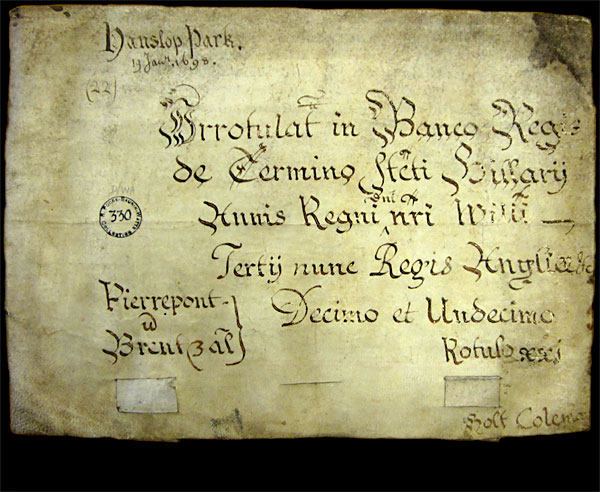 Hanslop Park.
19 Janr. 1698.
(22)
Irrotulat in Banco Regis
de Termino Sc̄ti Hillarij
330
Annis Regni Dn̄i nr̄i Willi
Tertij nunc Regis Angliæ &c
Decimo et Undecimo
Rotulo xxj
Pierrepont
Brent & al
Holt Colema